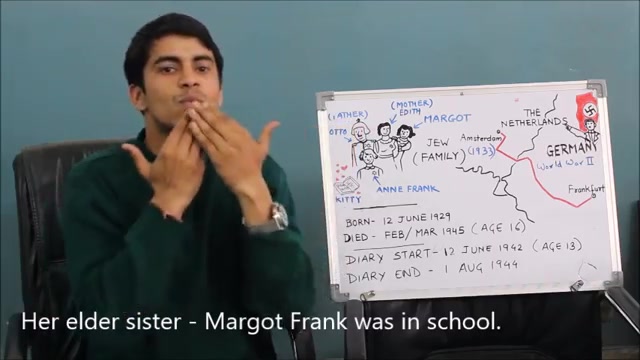 (FATHER)
OTTO
(MOTHER)
EDITH
MARGOT
ANNE FRANK
KITTY
JEW
(FAMILY)
THE
NETHERLANDS
Amsterdam
(1933)
GERMANY
World War II
Frankfurt
BORN- 12 JUNE 1929
DIED - FEB/MAR 1945 (AGE 16)
DIARY START- 12 JUNE 1942 (AGE 13)
DIARY END - 1 AUG 1944
Her elder sister - Margot Frank was in school.